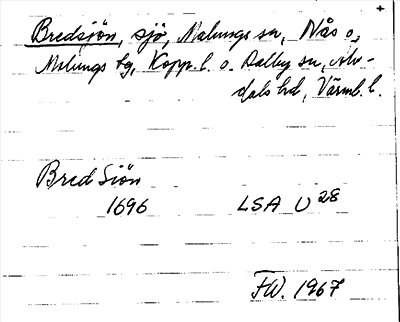 +
Bredsjön, sjö, Malungs sn, Nås o.
Malungs tg, Kopp. l. o. Dalby sn, Älv-
dals hd, Värml. l.
Bred Siön
1696 LSA U 28
F.W. 1967